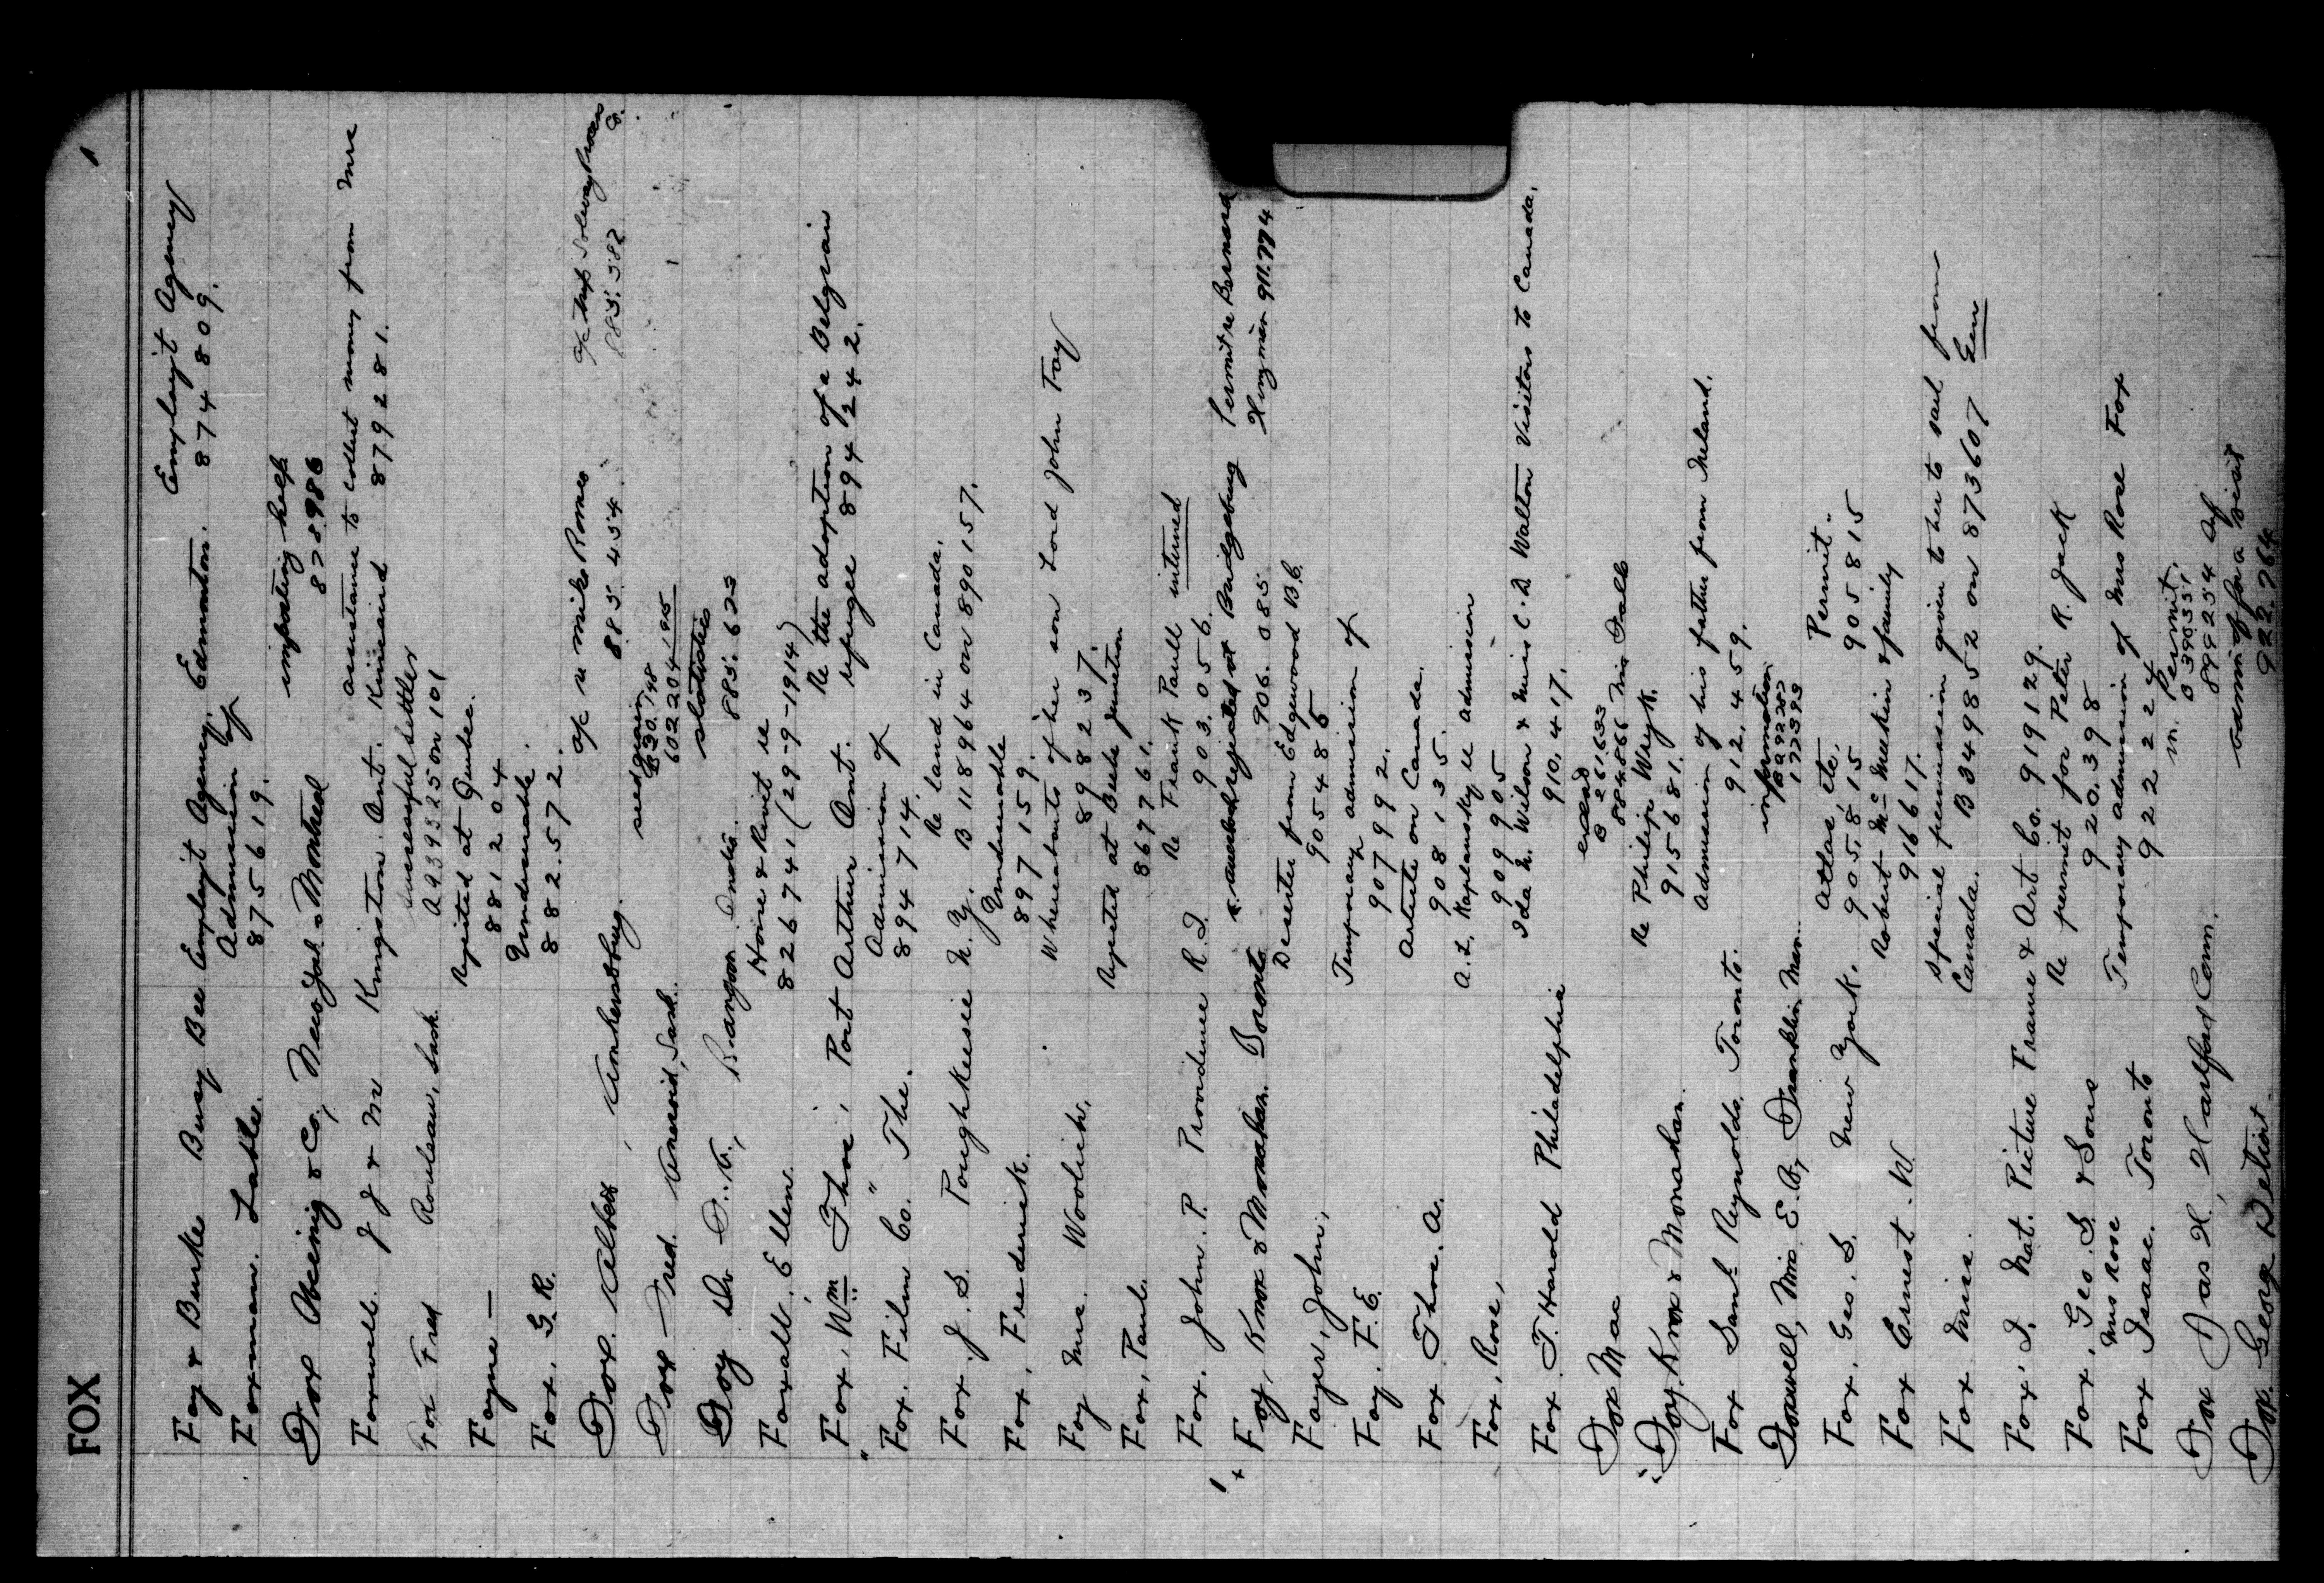 FOX
1
Foy & Burke Busy Bee Employt Agency, Edmonton. Employt Agency 874809.
Foxman. Admission of
875619.
Fox & Co, New York & Montreal importing help
8758986
Foxwell J J & M Kingston Ont. assistance to collect money from Mrs
Kincaird 879281.
Fox Fred Rouleau, Sask. successful settler
A939525 on 101
Foyne — Rejected at Quebec.
881204
Fox. G. R. Undesirable.
882.572.
Fox Albert, Amherstburg. a/c u Mike Romeo
885.454.
a/c Solway Process Co.
885.582
Fox Fred. Aneroid, Sask. seed grain
602204
Foy Dr D. A., Rangoon India. statistics
885.623
Foxall, Ellen. Home & Rivet re
826741 (29-9-1914)
" Fox, Wm Thos, Port Arthur Ont. Re the adoption of a Belgian
refugee 894242.
Fox. Film Co. " The. Admission of
894714.
Fox. J. S. Poughkeesie N.Y. Re land in Canada.
B 118964 on 890157.
Fox, Frederick. Undesirable
897159.
Foy Mrs. Woolich. Whereabouts of her son Lord John Foy
898237.
Fox, Paul. Rejected at Beebe Junction
867761.
Fox. John. P. Providence R.I. Re Frank Paull interned
903.056.
Foy, Knox & Monahan. Toronto. rejected at Bridgeburg
906.085
Permit re Bernard
Hingmier 911.774
Foyer, John, Deserter from Edgewood B.C.
905485
Foy. F. E. Temporary admission of
907992.
Fox Thos. A. Article on Canada.
908135.
Fox, Rose, A. L. Kaplansky re admission
909905
Fox. T. Harold Philadelphia Ida M. Wilson & Miss C. D. Walton Visitors to Canada.
910.417.
Fox Mac
B 261.633
884866
"Foy, Knox & Monahan. Re Philip Weyk.
915681.
Fox Saml Reynolds, Toronto. Admission of his father from Ireland.
912.459.
Foxwell, Mrs. E. A., Franklin Man. information
172393
Fox. Geo. S. New York. Atlas, etc. 905,815 Permit. 905815
Fox Ernest. W. Robert McMeekin & family
916617.
Fox Miss. Special permission given to her to sail from
Canada. B349852 on 873607 Gen
Fox. I. Nat. Picture Frame & Art Co. 919129.
Fox, Geo. S. & Sons Re permit for Peter R. Jack
920.398
Fox Isaac. Mrs Rose Toronto Temporary admission of Mrs Rose Fox
922224
Fox Jas H, Hartford Conn. Permit.
B 390331
899254
Fox. George Detroit. admn of for a visit
922.264